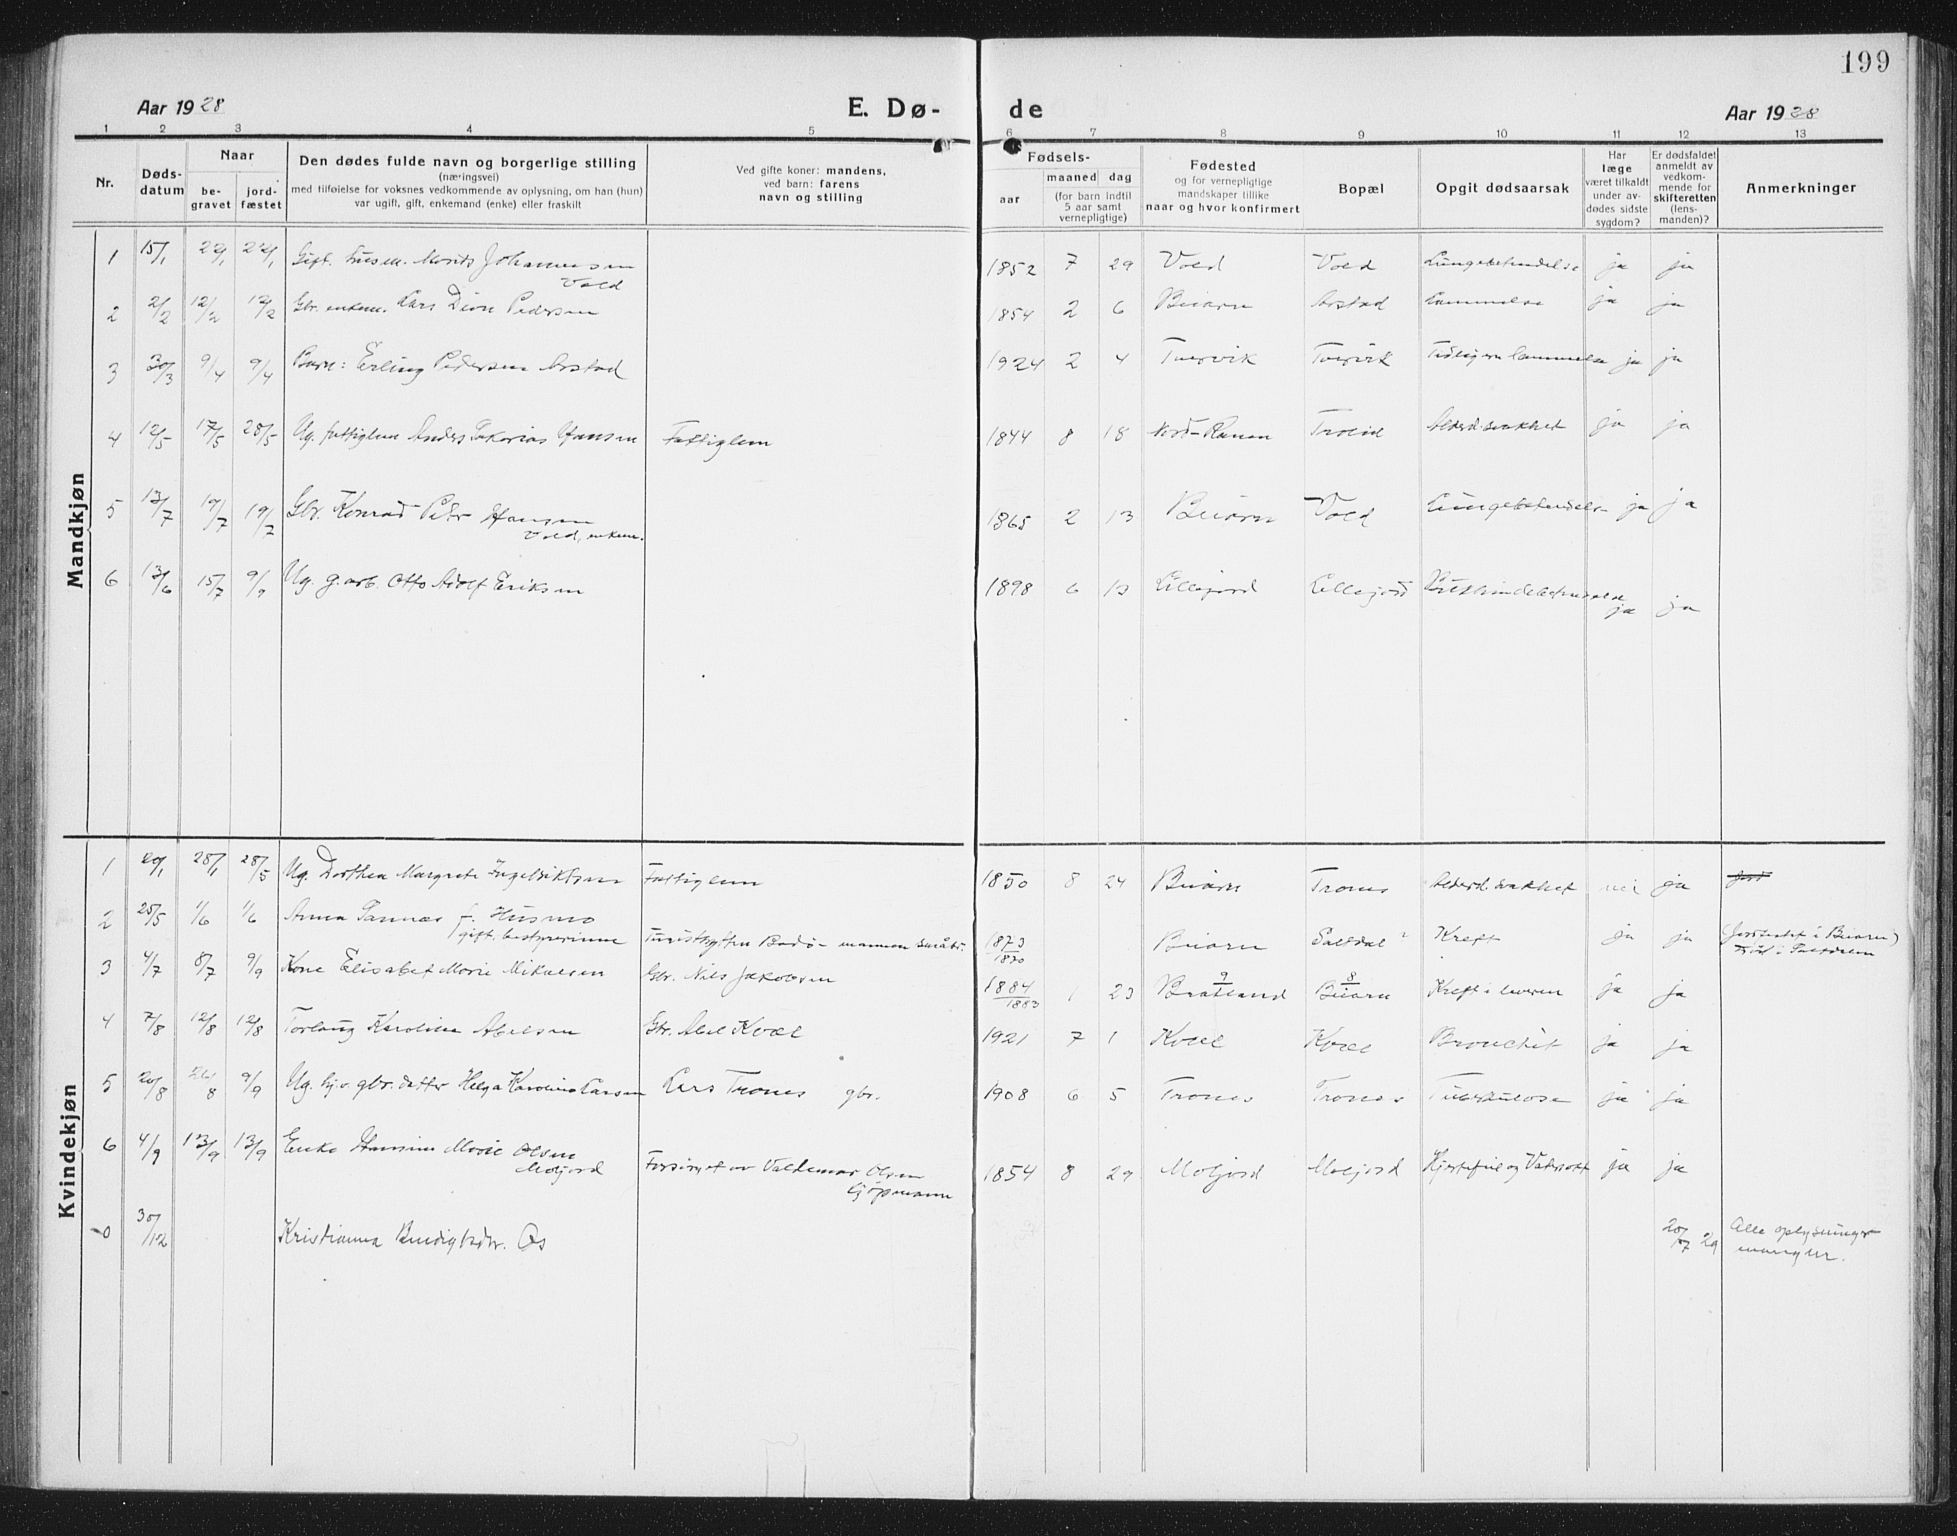 199
Aar 1928
E. Dø-
de
Aar 1928
1 2 3 4 5 6 7 8 9 10 11 12 13
Nr.
Døds-
datum
Naar
be-
gravet
jord-
fæstet
Den dødes fulde navn og borgerlige stilling
(næringsvei)
med tilføielse for voksnes vedkommende av oplysning, om han (hun)
var ugift, gift, enkemand (enke) eller fraskilt
Ved gifte koner: mandens,
ved barn: farens
navn og stilling
Fødsels-
aar
maaned dag
(for barn indtil
5 aar samt
vernepligtige)
Fødested
og for vernepligtige
mandskaper tillike
naar og hvor konfirmert
Bopæl
Opgit dødsaarsak
Har
læge
været tilkaldt
under av-
dødes sidste
sygdom?
Er dødsfaldet
anmeldt av
vedkom-
mende for
skifteretten
(lens-
manden)?
Anmerkninger
Mandkjøn
1 15/1 22/1 22/1 Gift. husm. Morits Johannessen 1852 7 29 Vold Vold Lungebetendelse ja ja
Vold
2 2/2 12/2 12/2 Gbr. enkem. Lars Pedersen 1854 2 6 Beiarn Arstad Lammelse ja ja
3 30/3 9/4 9/4 Barn: Erling Pedersen Arstad 1924 2 4 Tvervik Tvervik lammelse ja ja
4 12/5 17/5 28/5 Ug. fattiglem Anders Sakarias Hansen Fattiglem 1844 8 18 Nord-Ranen Alderdsvakhet ja ja
5 13/7 19/7 19/7 Gbr. Konrad Peder Hansen 1865 2 13 Beiarn Vold Lungebetendelse ja ja
Vold, enkem.
6 13/6 15/7 9/9 Ug. g. arb. Otto Adolf Eriksen 1898 6 13 Lillejord Lillejord Bukhindebetendelse ja ja
Kvindekjøn
1 20/1 28/1 28/5 Ug. Dorthea Margrete Ingebriktsen Fattiglem 1850 8 24 Beiarn Trones Alderdsvakhet nei ja
2 25/5 1/6 1/6 Anna f. Husmo
gift, bestyrerinne Bodø - mannen 1873 1870 Beiarn Saltdal Kreft ja ja Jordfestet i Beiarn
3 4/7 8/7 9/9 Kone Elisabet Marie Mikalsen Gbr. Nils Jakobsen 1884 1883 1 23 9 Bratland 8 Beiarn Kreft i leveren ja ja
4 7/8 12/8 12/8 Torlaug Karoline Abelsen Gbr. Abel Kvæl 1921 7 1 Kvæl Kvæl Bronchit ja ja
5 20/8 26/8 9/9 Ug. hj.v. gbr. datter Helga Karoline Larsen Lars Trones gbr. 1908 6 5 Trones Trones Tuberkulose ja ja
6 4/9 13/9 13/9 Enke Hansine Marie Olsen
Moljord Forsørget av Valdemar Olsen 1854 8 29 Moljord Moljord Hjertefeil og Vatersott ja ja
Kjøpmann
0 30/12 Kristianna Os 20/7 29 Alle oplysninger
mangler.